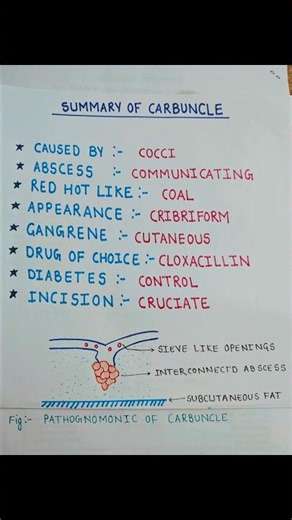 SUMMARY OF CARBUNCLE
★ CAUSED BY :- COCCI
★ ABSCESS :- COMMUNICATING
★ RED HOT LIKE :- COAL
★ APPEARANCE :- CRIBRIFORM
★ GANGRENE :- CUTANEOUS
★ DRUG OF CHOICE :- CLOXACILLIN
★ DIABETES :- CONTROL
★ INCISION :- CRUCIATE
SIEVE LIKE OPENINGS
INTERCONNECTD ABSCESS
SUBCUTANEOUS FAT
Fig :- PATHOGNOMONIC OF CARBUNCLE